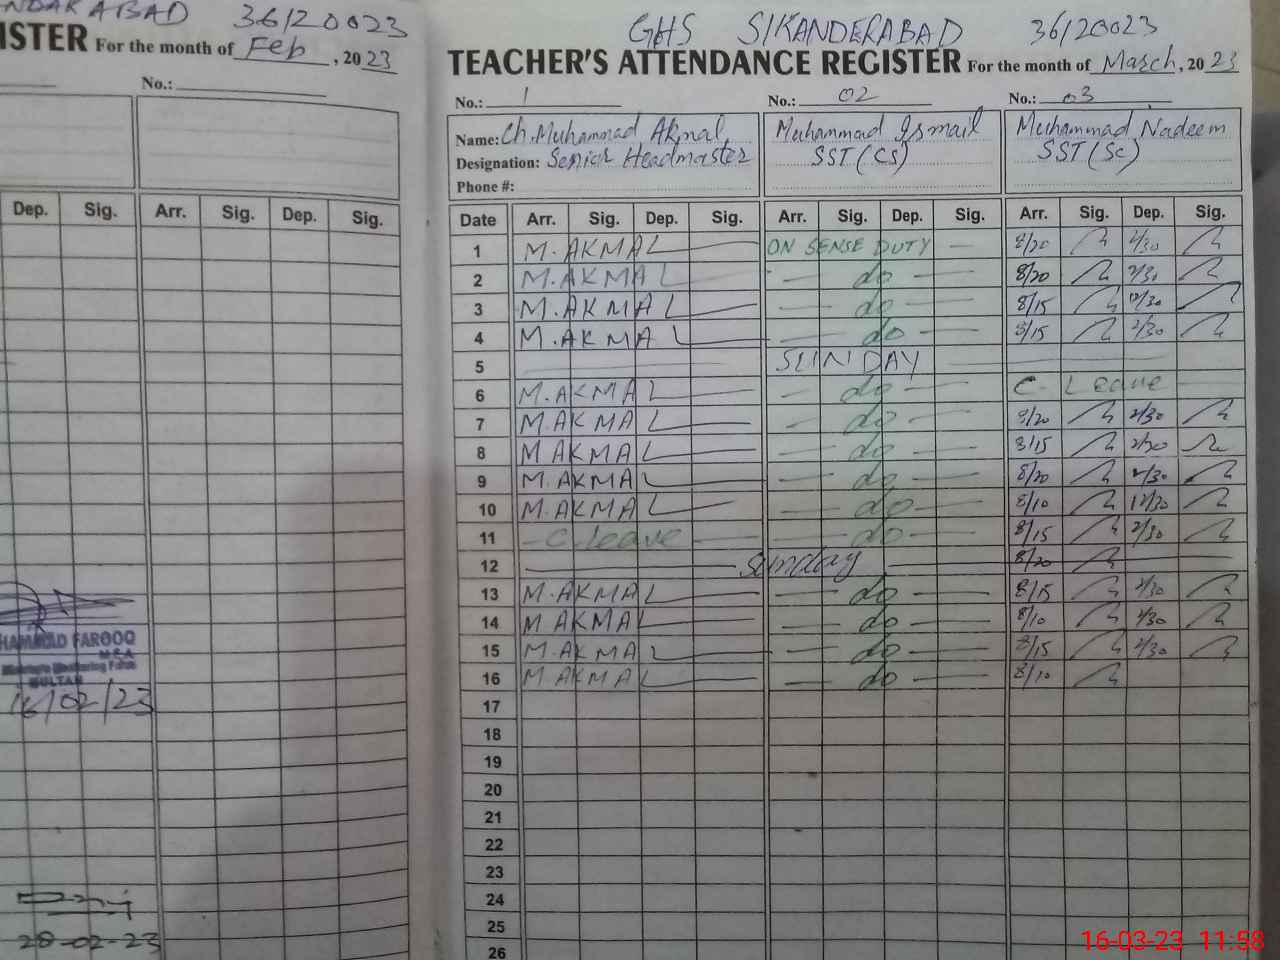 NDARABAD 36120023
ISTER For the month of Feb, 2023
No.:
Dep. Sig. Arr. Sig. Dep. Sig.
HAMMAD FAROOQ
M.E.A
MULTAN
16/02/23
28-02-23
GHS SIKANDERABAD 36120023
TEACHER'S ATTENDANCE REGISTER For the month of March, 2023
No.: 1 No.: 02 No.: 03
Name: Ch. Muhammad Akmal Muhammad Ismail Muhammad Nadeem
Designation: Senior Headmaster SST (CS) SST (Sc)
Phone #:
Date Arr. Sig. Dep. Sig. Arr. Sig. Dep. Sig. Arr. Sig. Dep. Sig.
1 M. AKMAL ON SENSE DUTY 8/20 2/30
2 M. AKMAL do 8/20 2/30
3 M. AKMAL do 8/15 12/30
4 M. AKMAL do 8/15 2/30
5 SUNDAY
6 M. AKMAL do C- Leave
7 M. AKMAL do 8/20 2/30
8 M AKMAL do 8/15 2/30
9 M. AKMAL do 8/20 2/30
10 M. AKMAL do 8/10 12/30
11 C. Leave do 8/15 2/30
12 Sunday 8/20
13 M. AKMAL do 8/15 2/30
14 M AKMAL do 8/10 2/30
15 M. AKMAL do 8/15 2/30
16 M. AKMAL do 8/10
17
18
19
20
21
22
23
24
25
26
16-03-23 11:58